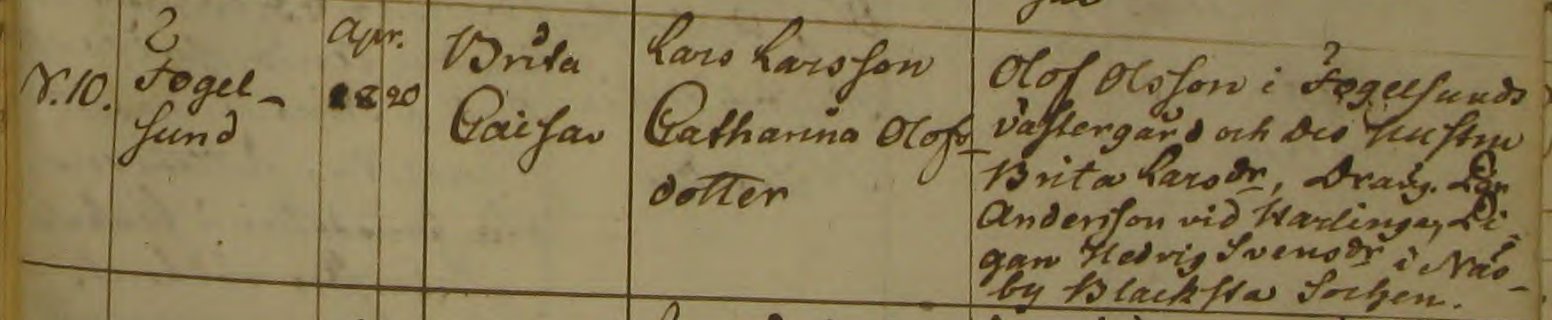 N. 10.
Fogel-
sund
Apr.
18 20
Brita
Caisa
Lars Larsson
Catharina Olofs-
dotter
Olof Olsson i Fogelsunds
Västergård och des hustru
Brita Larsdr, Dräng. Lar
Andersson vid Harlinge, Pi-
gan Hedvig Svensdr i Näs-
by Blacksta Sochen.